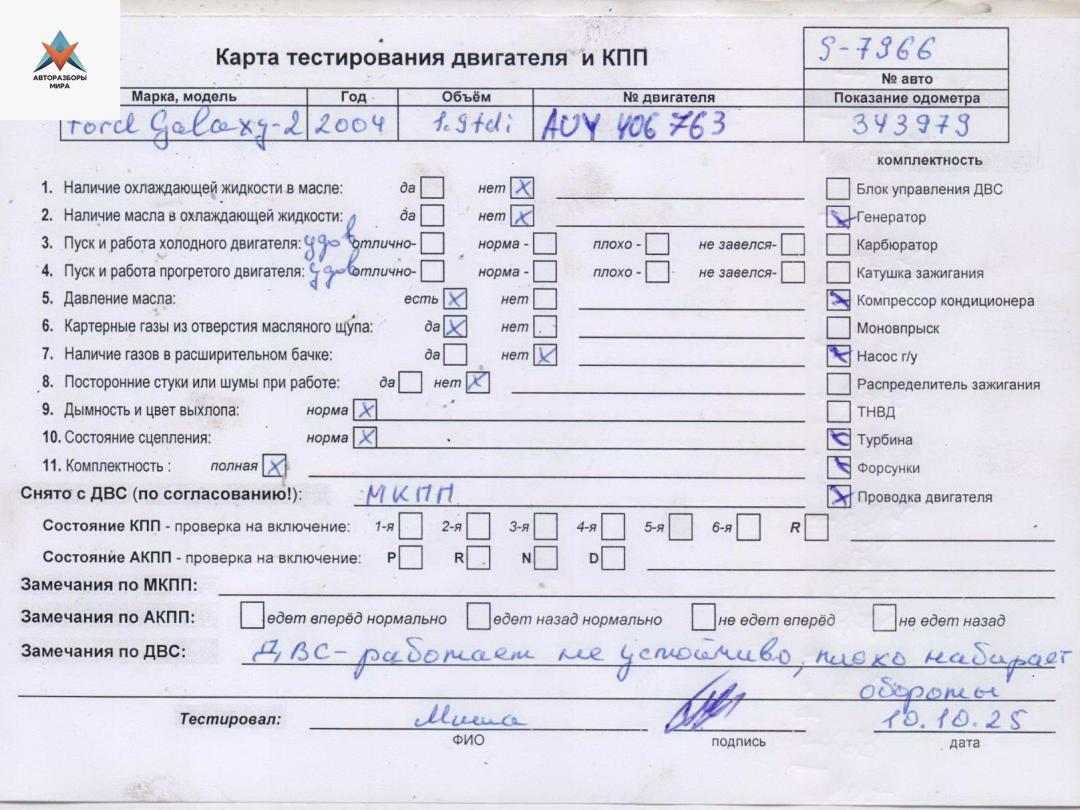 АВТОРАЗБОРЫ
МИРА
Карта тестирования двигателя и КПП
9-7966
№ авто
Марка, модель Год Объём № двигателя Показание одометра
Ford Galaxy-2 2004 1.9tdi AUY 406 763 343979
комплектность
1. Наличие охлаждающей жидкости в масле: да нет X Блок управления ДВС
2. Наличие масла в охлаждающей жидкости: да нет X X Генератор
3. Пуск и работа холодного двигателя: удов отлично- норма - плохо - не завелся- Карбюратор
4. Пуск и работа прогретого двигателя: удов отлично- норма - плохо - не завелся- Катушка зажигания
5. Давление масла: есть X нет X Компрессор кондиционера
6. Картерные газы из отверстия масляного щупа: да X нет Моновпрыск
7. Наличие газов в расширительном бачке: да нет X X Насос г/у
8. Посторонние стуки или шумы при работе: да нет X Распределитель зажигания
9. Дымность и цвет выхлопа: норма X ТНВД
10. Состояние сцепления: норма X X Турбина
11. Комплектность : полная X X Форсунки
Снято с ДВС (по согласованию!): МКПП X Проводка двигателя
Состояние КПП - проверка на включение: 1-я 2-я 3-я 4-я 5-я 6-я R
Состояние АКПП - проверка на включение: P R N D
Замечания по МКПП:
Замечания по АКПП: едет вперёд нормально едет назад нормально не едет вперёд не едет назад
Замечания по ДВС: ДВС- работает не устойчиво, плохо набирает
обороты
Тестировал: Миша 10.10.25
ФИО подпись дата